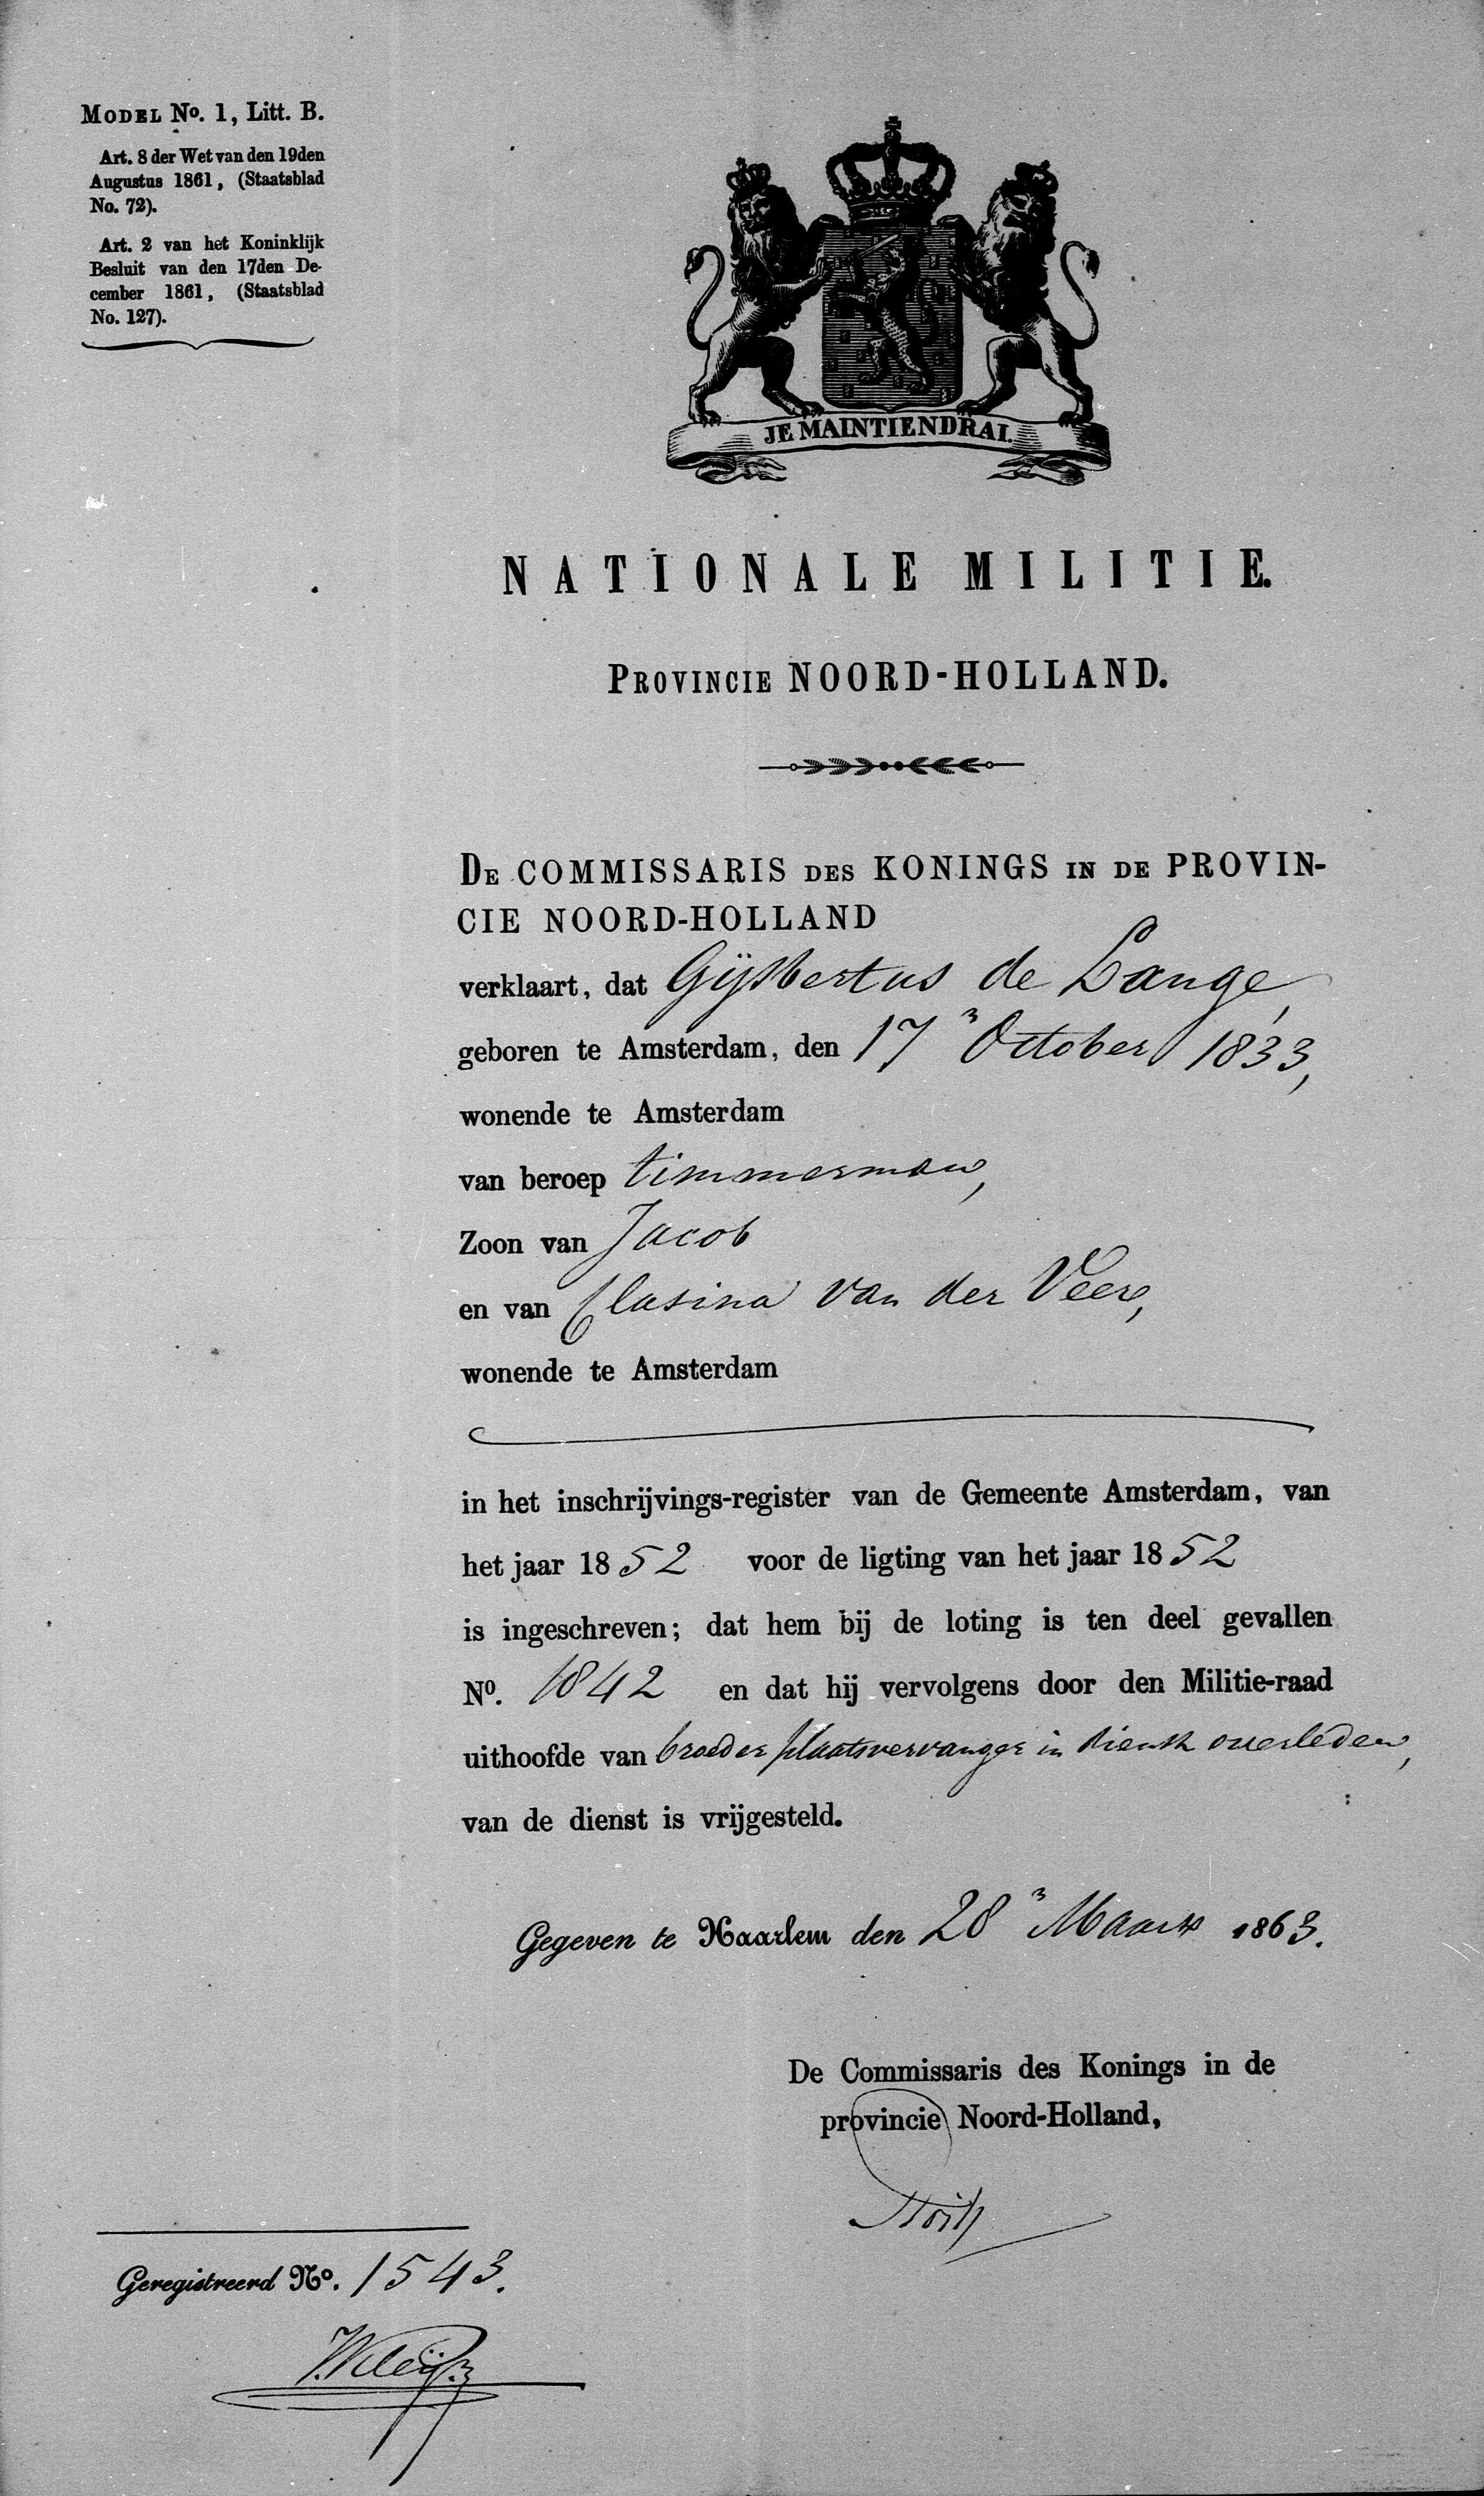 MODEL No. 1, Litt. B.
Art. 8 der Wet van den 19den
Augustus 1861, (Staatsblad
No. 72).
Art. 2 van het Koninklijk
Besluit van den 17den De-
cember 1861, (Staatsblad
No. 127).
JE MAINTIENDRAI.
NATIONALE MILITIE.
PROVINCIE NOORD-HOLLAND.
DE COMMISSARIS DES KONINGS IN DE PROVIN-
CIE NOORD-HOLLAND
verklaart, dat Gijsbertus de Lange,
geboren te Amsterdam, den 17n October 1833,
wonende te Amsterdam
van beroep timmerman,
Zoon van Jacob
en van Clasina van der Veer,
wonende te Amsterdam
in het inschrijvings-register van de Gemeente Amsterdam, van
het jaar 1852 voor de ligting van het jaar 1852
is ingeschreven; dat hem bij de loting is ten deel gevallen
No. 1842 en dat hij vervolgens door den Militie-raad
uithoofde van broeder plaatsvervanger in dienst overleden,
van de dienst is vrijgesteld.
Gegeven te Haarlem den 28n Maart 1863.
De Commissaris des Konings in de
provincie Noord-Holland,
Geregistreerd No. 1543.